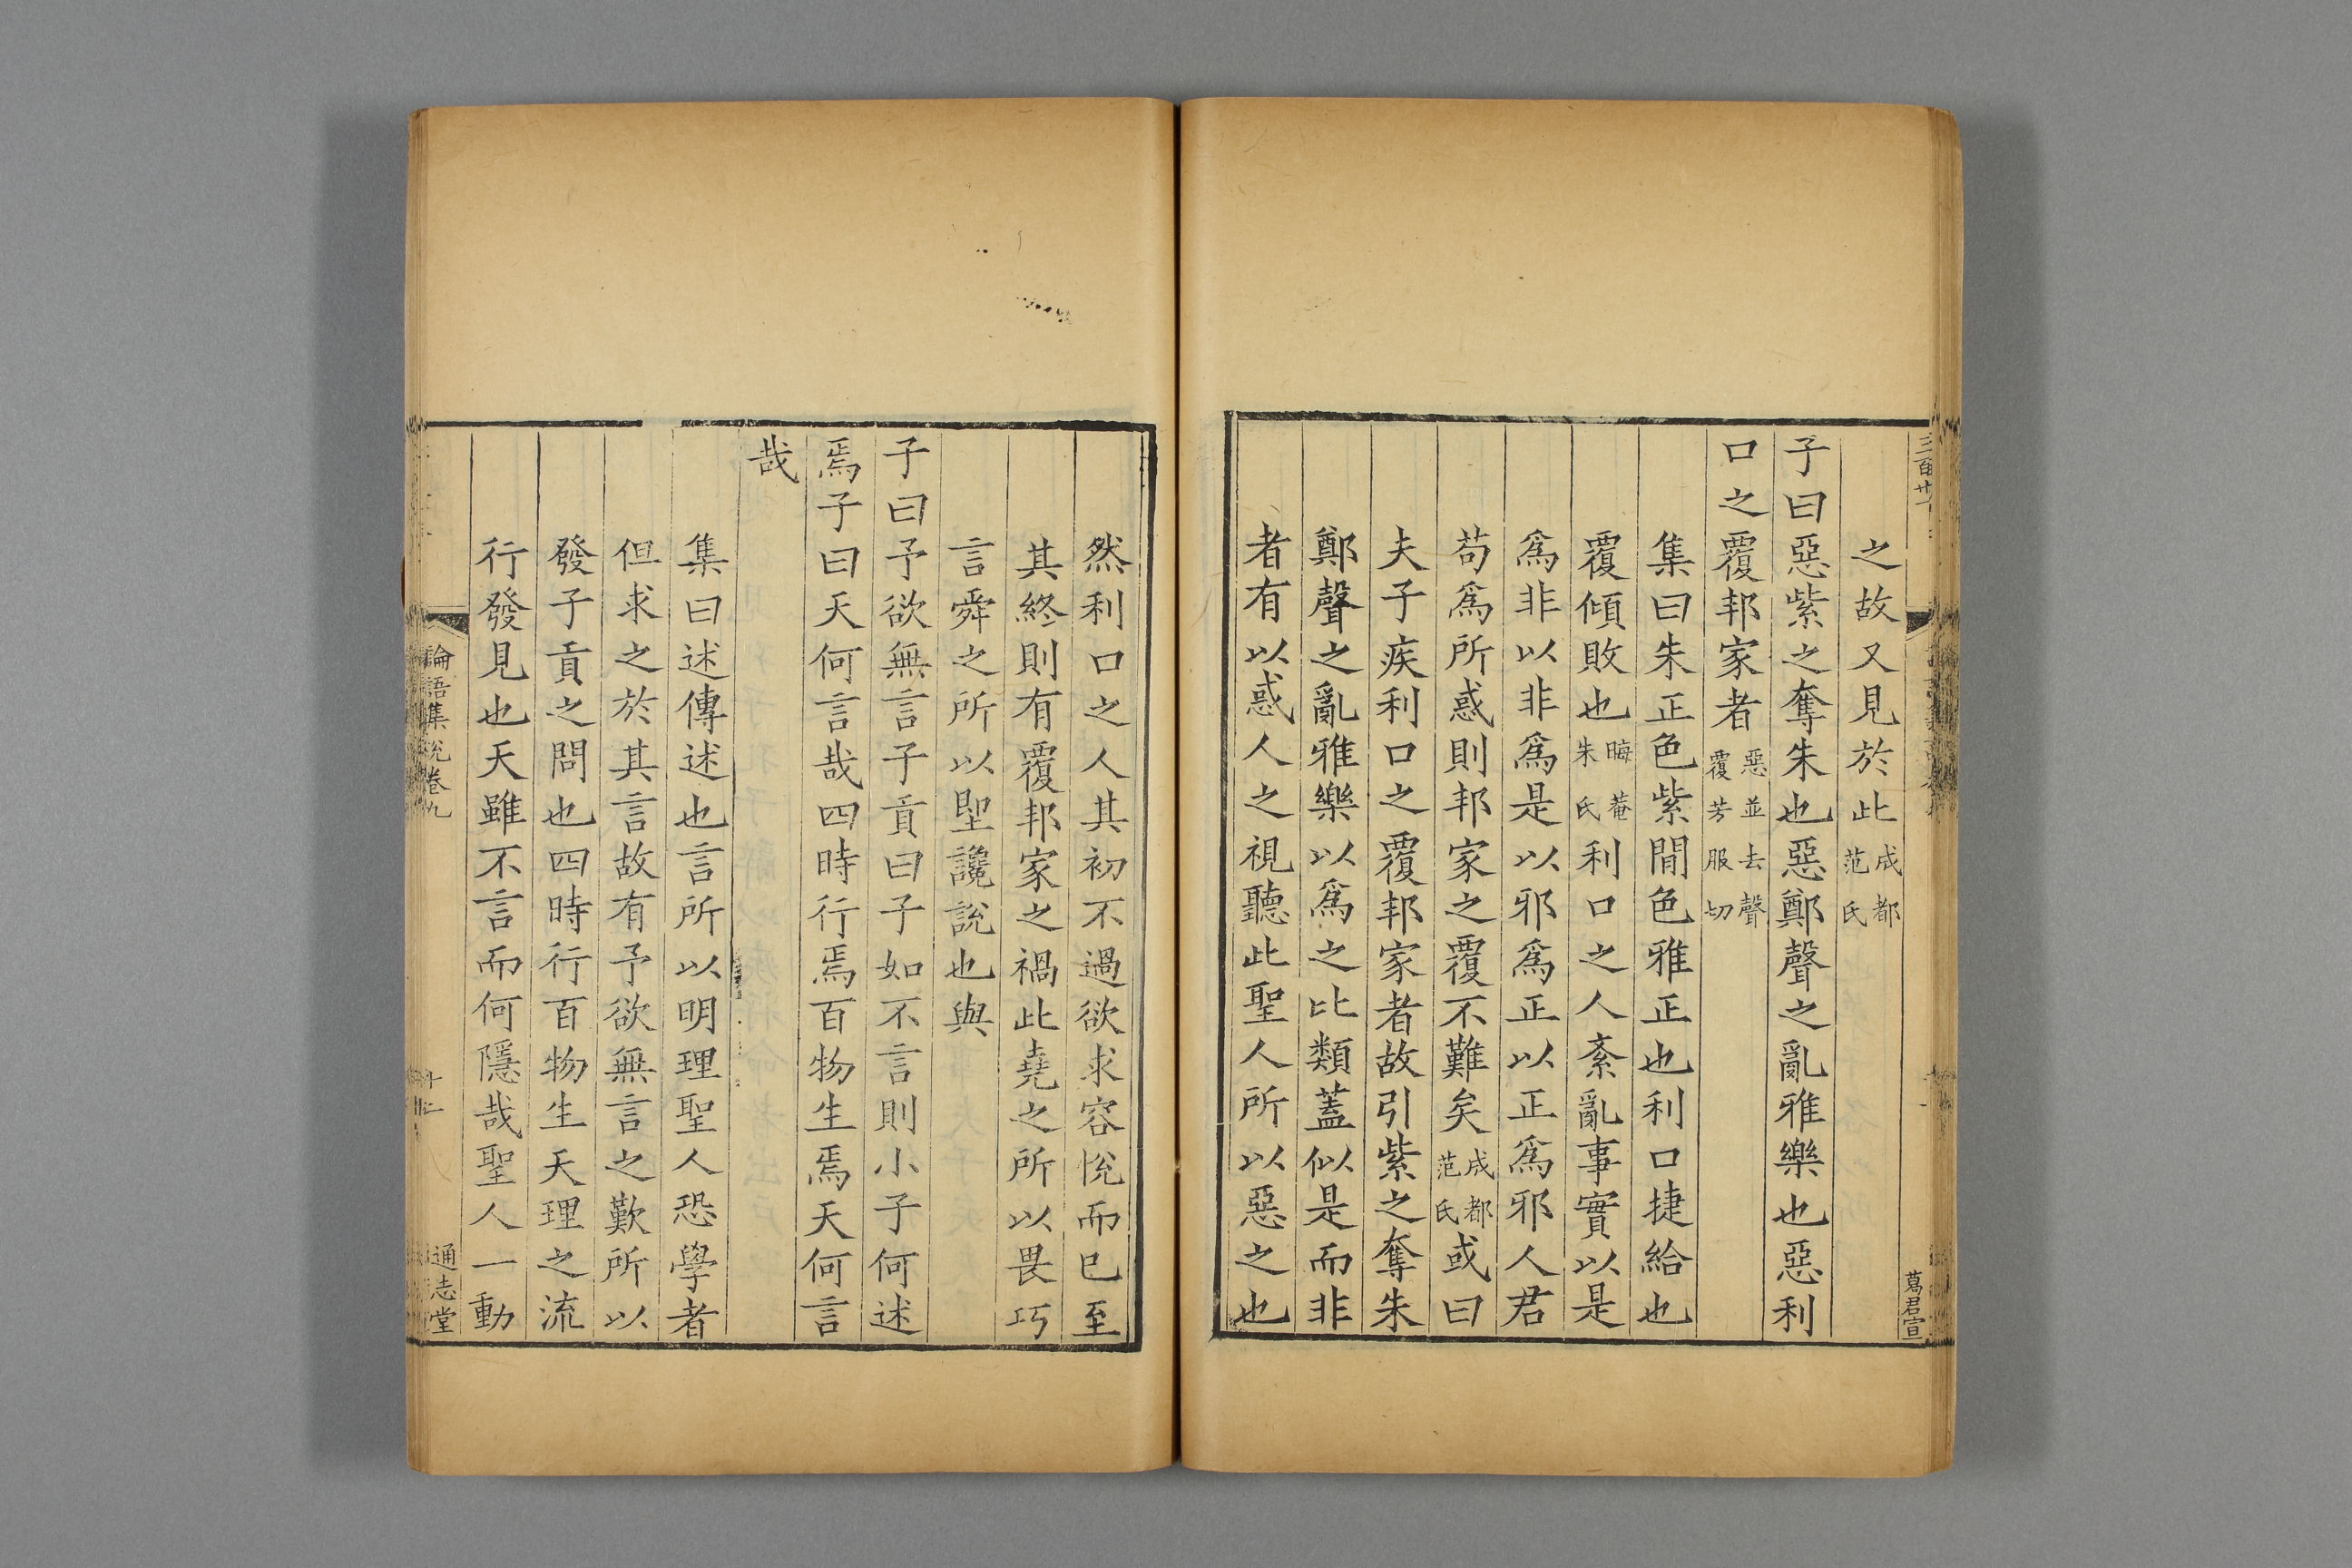 之故又見於此成都范氏
子曰惡紫之奪朱也惡鄭聲之亂雅樂也惡利
口之覆邦家者惡並去聲覆芳服切
集曰朱正色紫閒色雅正也利口捷給也
覆傾敗也晦菴朱氏利口之人紊亂事實以是
爲非以非爲是以邪爲正以正爲邪人君
苟爲所惑則邦家之覆不難矣成都范氏或曰
夫子疾利口之覆邦家者故引紫之奪朱
鄭聲之亂雅樂以爲之比類蓋似是而非
者有以惑人之視聽此聖人所以惡之也
葛君宣
然利口之人其初不過欲求容悅而已至
其終則有覆邦家之禍此堯之所以畏巧
言舜之所以聖讒說也與
子曰予欲無言子貢曰子如不言則小子何述
焉子曰天何言哉四時行焉百物生焉天何言
哉
集曰述傳述也言所以明理聖人恐學者
但求之於其言故有予欲無言之歎所以
發子貢之問也四時行百物生天理之流
行發見也天雖不言而何隱哉聖人一動
論語集說卷九
通志堂